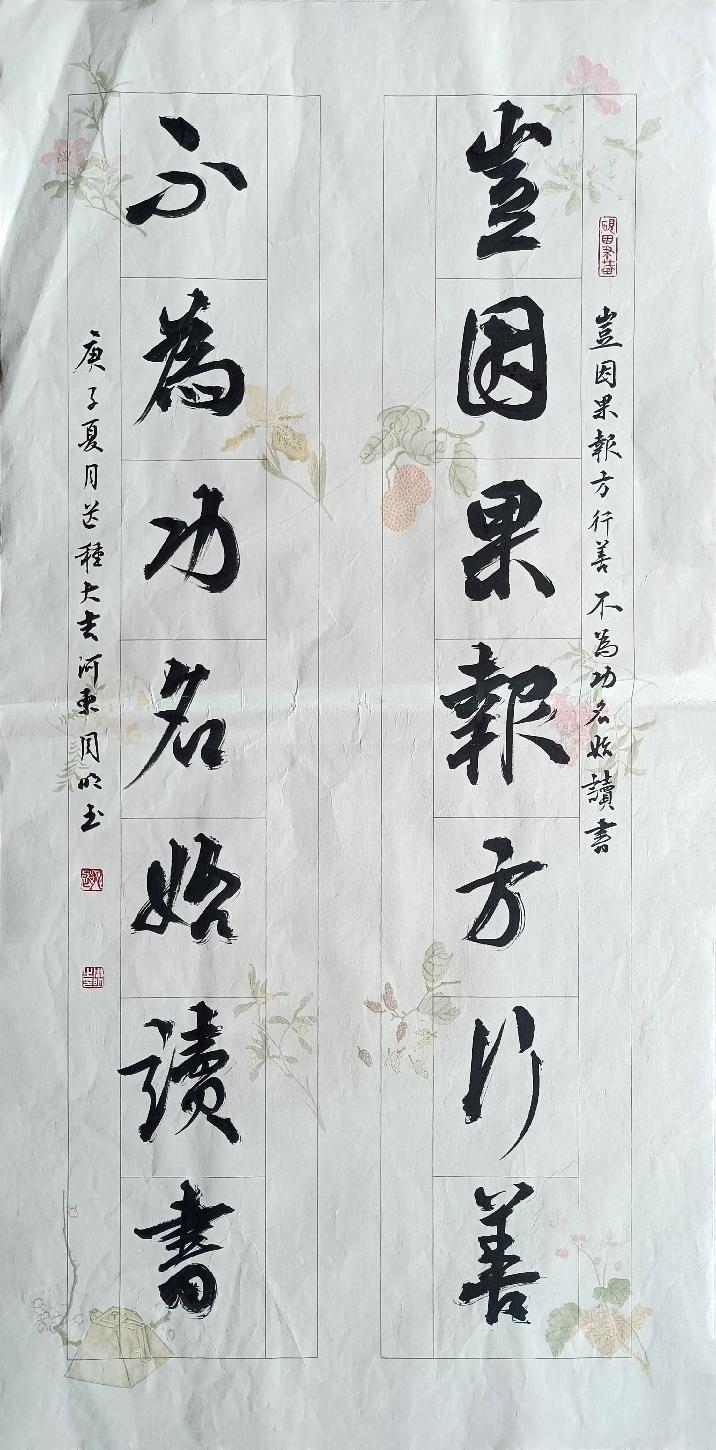 豈因果報方行善
不為功名始讀書
豈因果報方行善 不為功名始讀書
庚子夏月芒種大吉河東周明玉